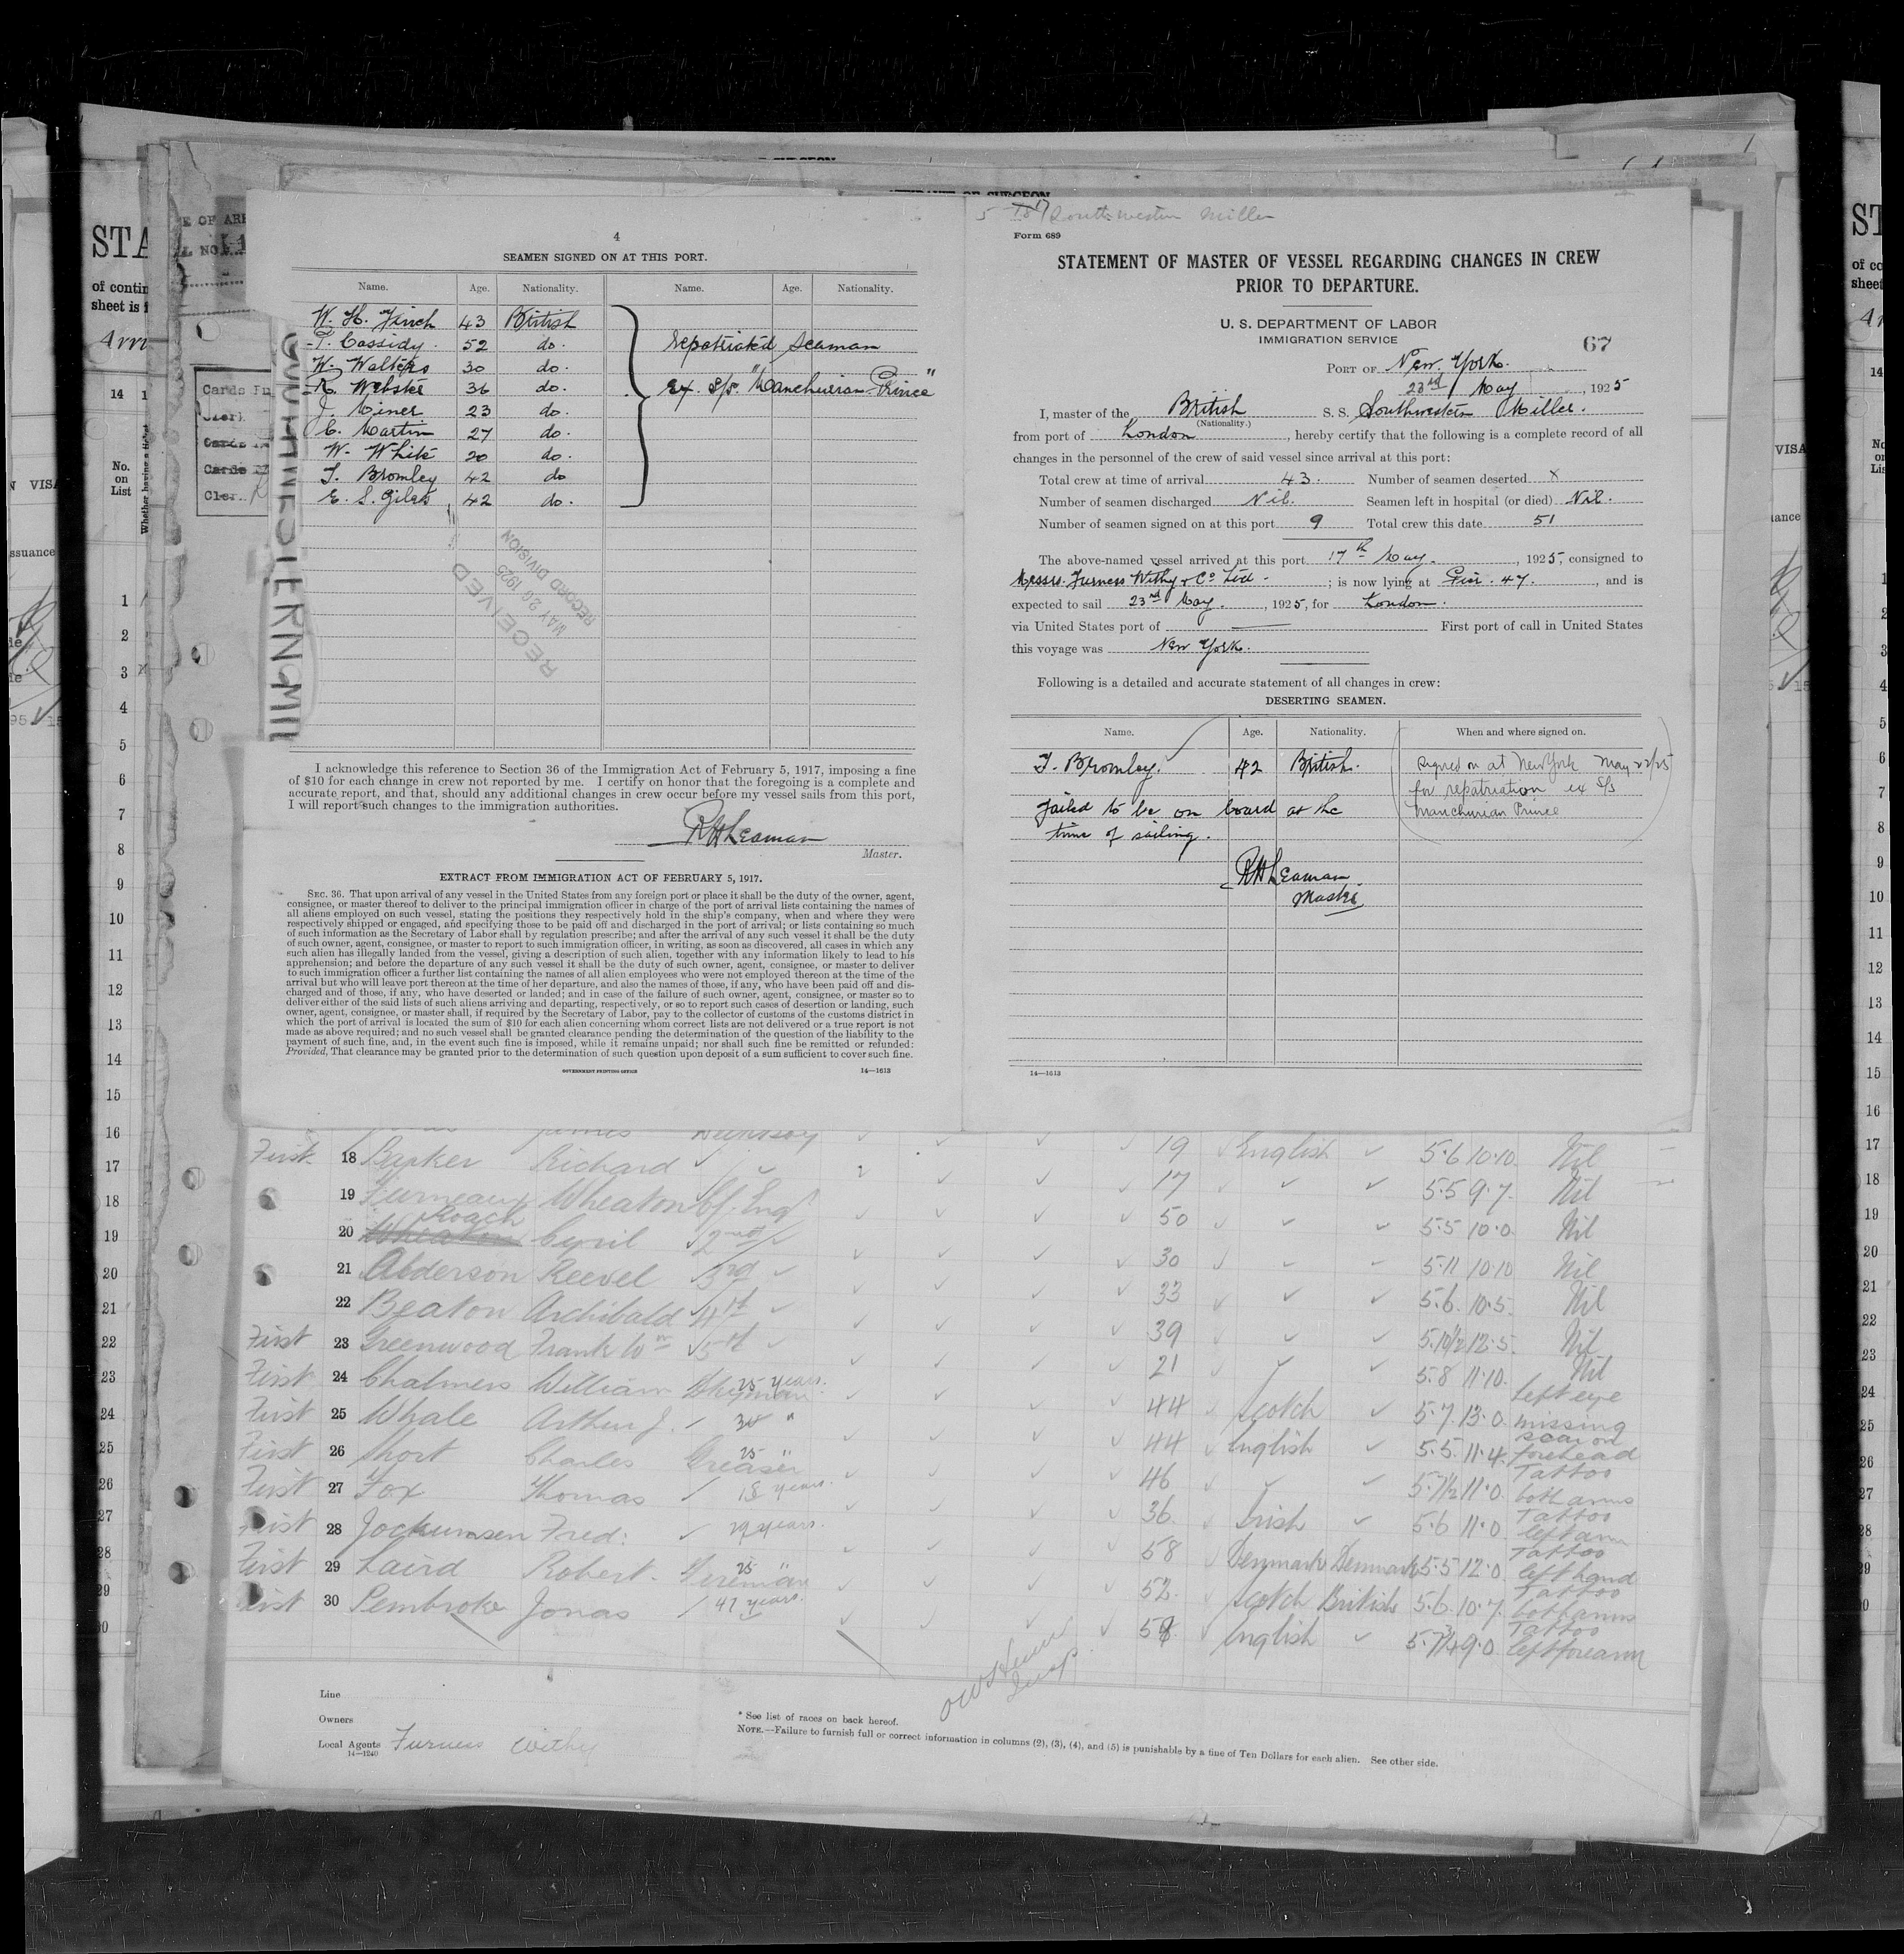 4
SEAMEN SIGNED ON AT THIS PORT.
Name. Age. Nationality. Name. Age. Nationality.
W. H. Finch 43 British
T. Cassidy. 52 do.
W. Walters 30 do.
R. Webster 36 do.
J. Miner 23 do.
C. Martin 27 do.
W. White 20 do.
T. Bromley 42 do
E. S. Giles 42 do.
repatriated Seaman
Ex. S/S. "Manchurian Prince"
RECEIVED
MAY 26 1925
RECORD DIVISION
I acknowledge this reference to Section 36 of the Immigration Act of February 5, 1917, imposing a fine
of $10 for each change in crew not reported by me. I certify on honor that the foregoing is a complete and
accurate report, and that, should any additional changes in crew occur before my vessel sails from this port,
I will report such changes to the immigration authorities.
RHLeaman
Master.
EXTRACT FROM IMMIGRATION ACT OF FEBRUARY 5, 1917.
SEC. 36. That upon arrival of any vessel in the United States from any foreign port or place it shall be the duty of the owner, agent,
consignee, or master thereof to deliver to the principal immigration officer in charge of the port of arrival lists containing the names of
all aliens employed on such vessel, stating the positions they respectively hold in the ship's company, when and where they were
respectively shipped or engaged, and specifying those to be paid off and discharged in the port of arrival; or lists containing so much
of such information as the Secretary of Labor shall by regulation prescribe; and after the arrival of any such vessel it shall be the duty
of such owner, agent, consignee, or master to report to such immigration officer, in writing, as soon as discovered, all cases in which any
such alien has illegally landed from the vessel, giving a description of such alien, together with any information likely to lead to his
apprehension; and before the departure of any such vessel it shall be the duty of such owner, agent, consignee, or master to deliver
to such immigration officer a further list containing the names of all alien employees who were not employed thereon at the time of the
arrival but who will leave port thereon at the time of her departure, and also the names of those, if any, who have been paid off and dis-
charged and of those, if any, who have deserted or landed; and in case of the failure of such owner, agent, consignee, or master so to
deliver either of the said lists of such aliens arriving and departing, respectively, or so to report such cases of desertion or landing, such
owner, agent, consignee, or master shall, if required by the Secretary of Labor, pay to the collector of customs of the customs district in
which the port of arrival is located the sum of $10 for each alien concerning whom correct lists are not delivered or a true report is not
made as above required; and no such vessel shall be granted clearance pending the determination of the question of the liability to the
payment of such fine, and, in the event such fine is imposed, while it remains unpaid; nor shall such fine be remitted or refunded:
Provided, That clearance may be granted prior to the determination of such question upon deposit of a sum sufficient to cover such fine.
GOVERNMENT PRINTING OFFICE 14—1613
Southwestern Miller
Form 689
STATEMENT OF MASTER OF VESSEL REGARDING CHANGES IN CREW
PRIOR TO DEPARTURE.
U. S. DEPARTMENT OF LABOR
IMMIGRATION SERVICE
67
PORT OF New York.
23rd May, 1925
I, master of the British S. S. Southwestern Miller.
(Nationality.)
from port of London, hereby certify that the following is a complete record of all
changes in the personnel of the crew of said vessel since arrival at this port:
Total crew at time of arrival 43. Number of seamen deserted X
Number of seamen discharged Nil. Seamen left in hospital (or died) Nil.
Number of seamen signed on at this port 9 Total crew this date 51
The above-named vessel arrived at this port 17th May., 1925, consigned to
Messrs. Furness Withy & Co Ltd. ; is now lying at Pier. 47., and is
expected to sail 23rd May., 1925, for London.
via United States port of First port of call in United States
this voyage was New York.
Following is a detailed and accurate statement of all changes in crew:
DESERTING SEAMEN.
Name. Age. Nationality. When and where signed on.
T. Bromley. 42 British. Signed on at New York May 22/25
for repatriation ex S/s
Manchurian Prince
failed to be on board at the
time of sailing.
RHLeaman
Master
14—1613
19 English 5.6 10.10. Nil
First 18 Barker Richard 17 5.5 9.7. Nil
19 Furneaux Wheaton Cf. Eng 50 5.5 10.0 Nil
Roach
20 Wheaton Cyril 2nd 30 5.11 10.10 Nil
21 Alderson Reevel 3rd 33 5.6. 10.5. Nil
22 Beaton Archibald 4th 39 5.10½ 12.5. Nil
First 23 Greenwood Frank Wm 5th 21 5.8 11.10. Nil
First 24 Chalmers William 25 years. 44 Scotch 5.7. 13.0. left eye missing
First 25 Whale Arthur J. 30 " 44 English 5.5. 11.4. scar on forehead
First 26 Short Charles Greaser 25 " 46 5.7½ 11.0. Tattoo both arms
First 27 Fox Thomas 18 years. 36. Irish 5.6 11.0 Tattoo left arm
First 28 Jochumsen Fred: 29 years. 58 Denmark Denmark 5.5 12.0. Tattoo left hand
First 29 Laird Robert. Fireman 25 " 52. Scotch British 5.6. 10.7. Tattoo both arms
First 30 Pembroke Jonas 41 years. English 9.0 Tattoo left forearm
Line
Owners
Local Agents Furness Withy
14—1240
* See list of races on back hereof.
NOTE.—Failure to furnish full or correct information in columns (2), (3), (4), and (5) is punishable by a fine of Ten Dollars for each alien. See other side.